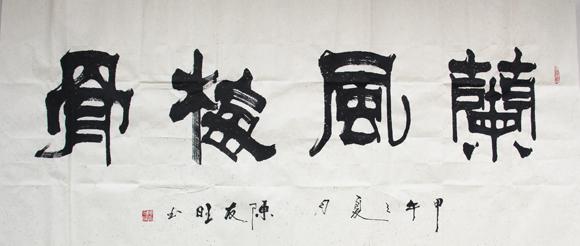 蘭風梅骨
甲午之夏月陳友旺书